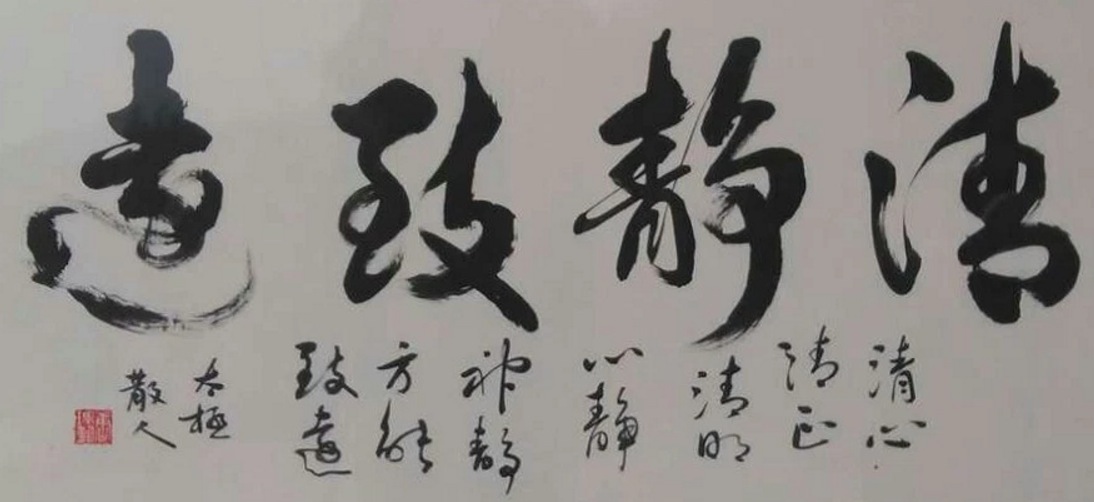 清静致远
清心
清正
清明
心静
神静
方能
致远
太极
散人